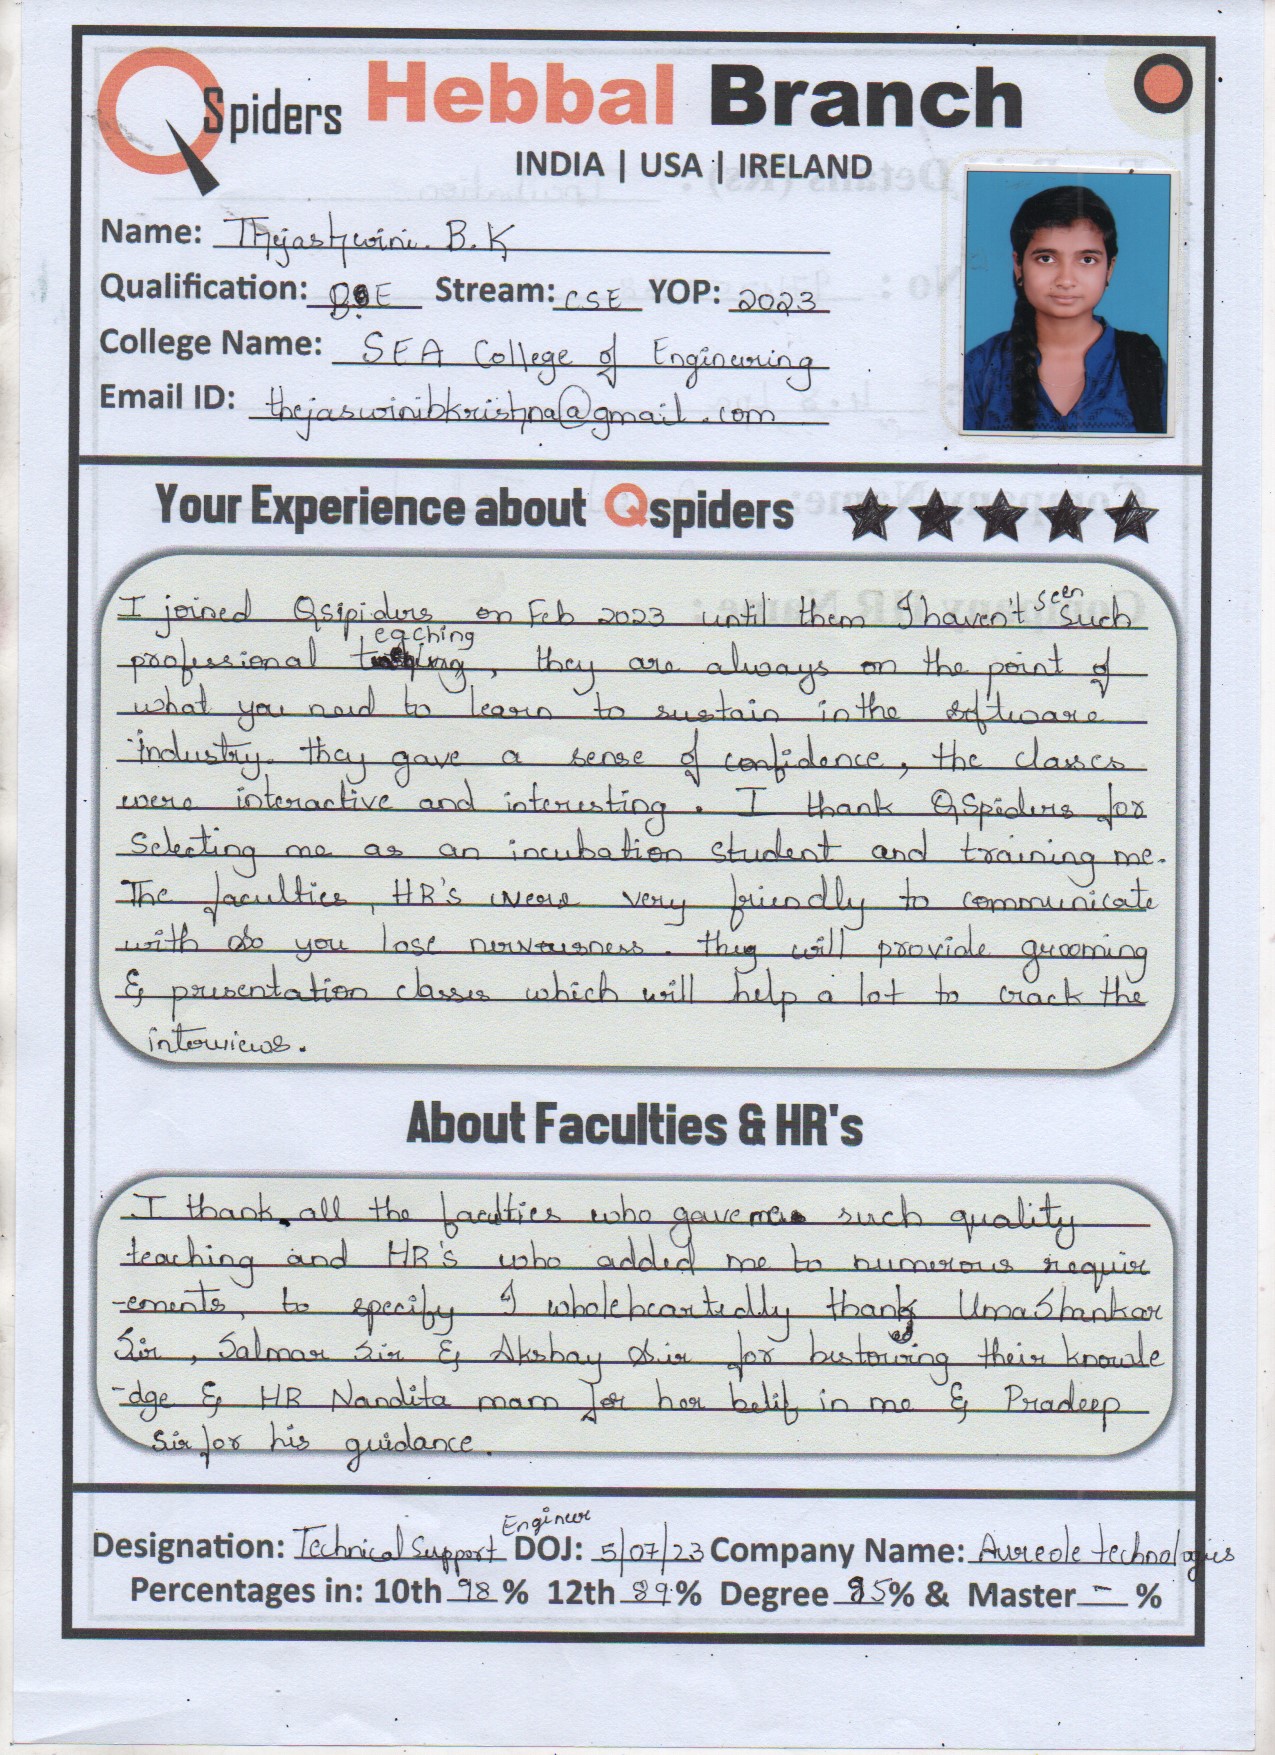 QSpiders Hebbal Branch
INDIA | USA | IRELAND
Name: Thejashwini. B.K
Qualification: B.E Stream: CSE YOP: 2023
College Name: SEA College of Enginering
Email ID: thejaswinibkrishna@gmail.com
Your Experience about Qspiders
I joined Qsipiders on Feb 2023 until them I haven't seen such
professional teaching, they are always on the point of
what you need to learn to sustain in the software
industry. they gave a sense of confidence, the classes
were interactive and interesting. I thank QSpiders for
Selecting me as an incubation student and training me.
The faculties, HR's were very friendly to communicate
with so you lose nervousness. they will provide grooming
& presentation classes which will help a lot to crack the
interviews.
About Faculties & HR's
I thank all the faculties who gave me such quality
teaching and HR's who added me to numerous requir
-ements, to specify I wholeheartedly thank UmaShankar
Sir, Salman Sir & Akshay Sir for bestowing their knowle
-dge & HR Nandita mam for her belif in me & Pradeep
Sir for his guidance.
Designation: Technical Support Engineer DOJ: 5/07/23 Company Name: Aureole technologies
Percentages in: 10th 98 % 12th 89 % Degree 85 % & Master - %